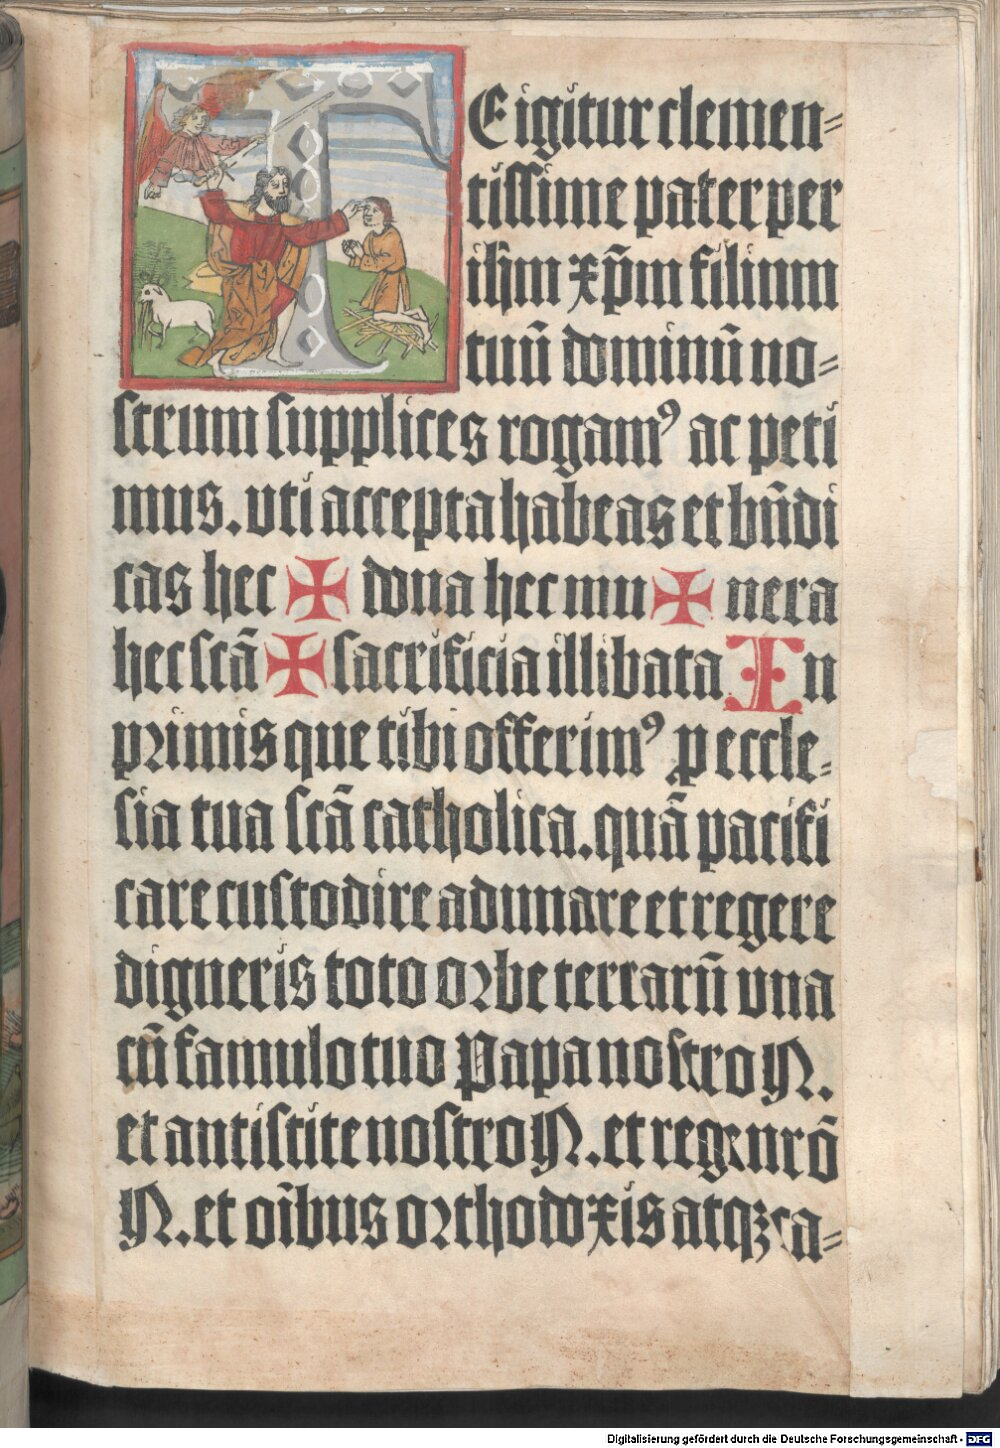 TE igitur clemen⸗
tissime pater per
ihm̄ xp̄m filium
tuū dominū no⸗
strum supplices rogamꝰ ac peti
mus. vti accepta habeas et bn̄di
cas hec ✠ dona hec mu ✠ nera
hec scā ✠ sacrificia illibata In
primis que tibi offerimꝰ ꝓ eccle⸗
sia tua scā catholica. quā pacifi
care custodire adunare et regere
digneris toto orbe terrarū vna
cū famulo tuo Papa nostro N.
et antistite nostro N. et rege nrō
N. et oībus orthodoxis atqꝫ ca⸗
Digitalisierung gefördert durch die Deutsche Forschungsgemeinschaft - DFG